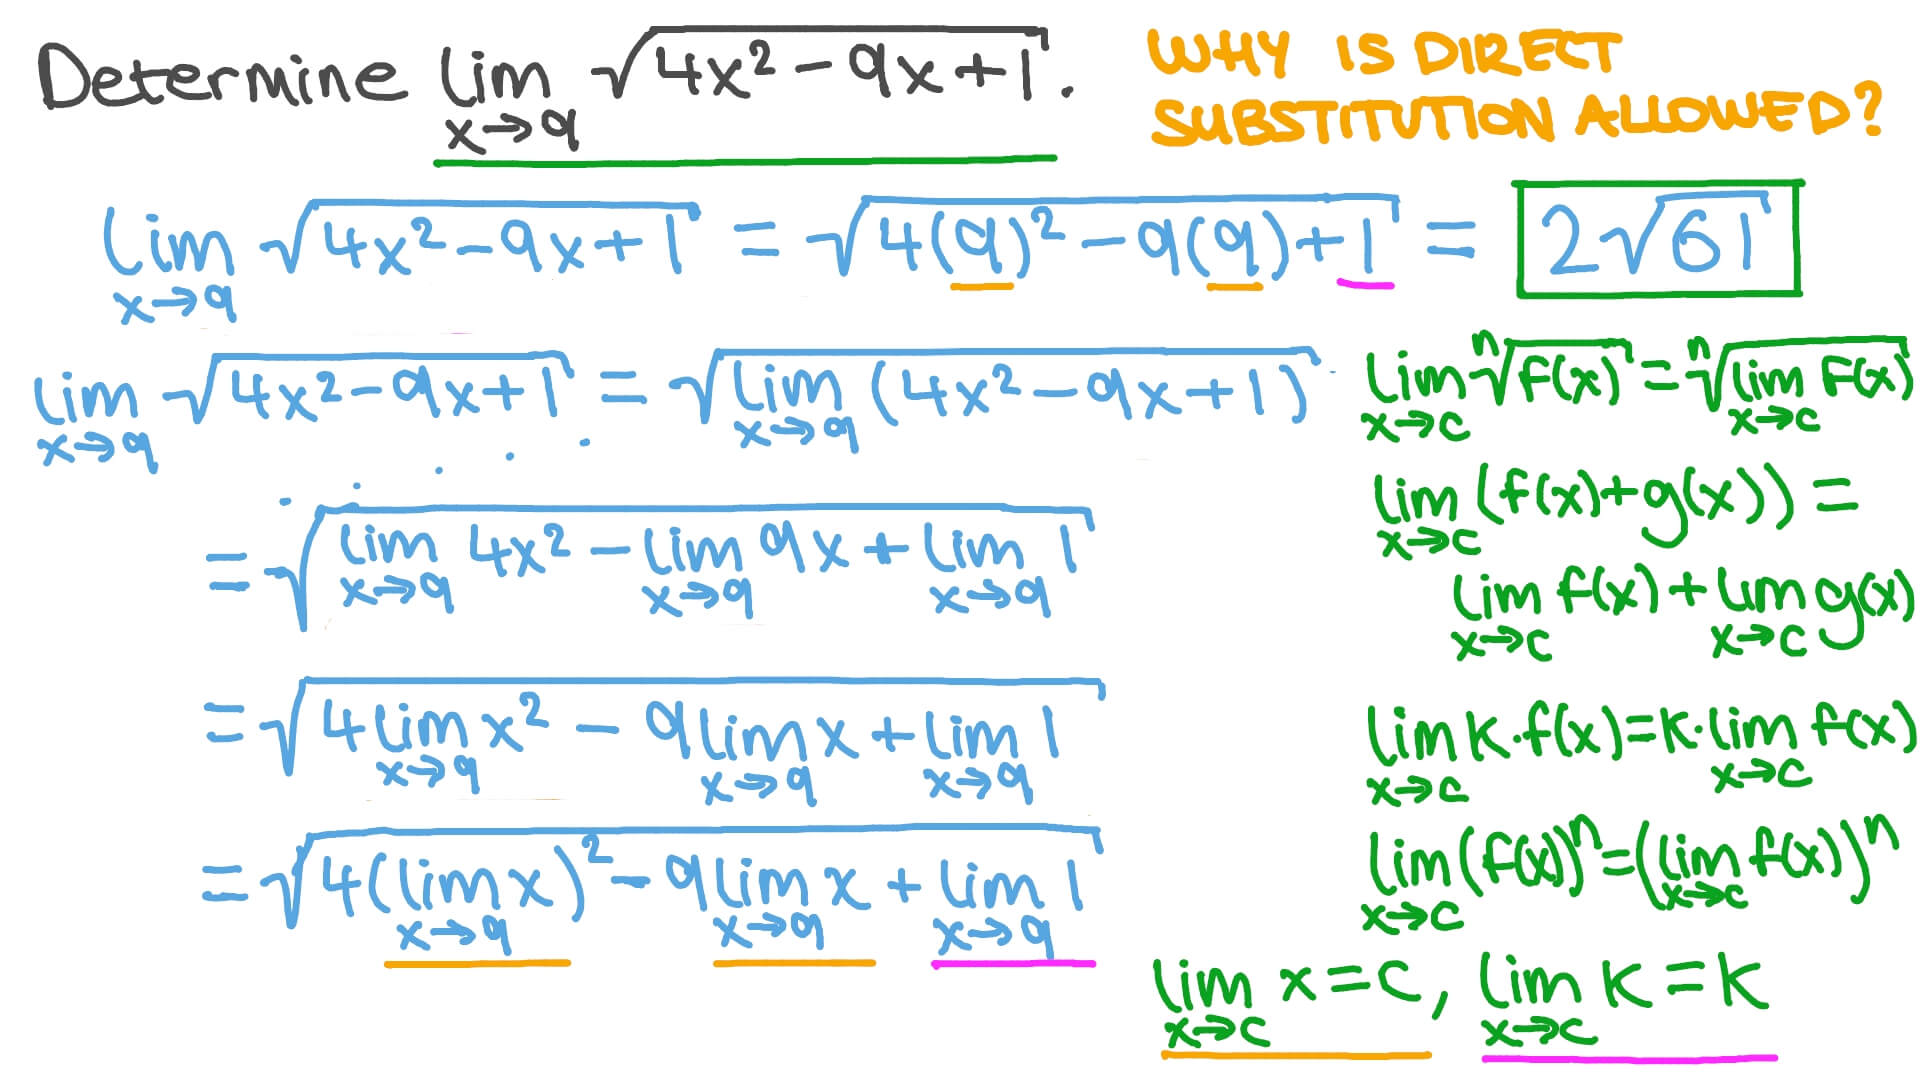 Determine lim x→9 √(4x² − 9x + 1).
WHY IS DIRECT
SUBSTITUTION ALLOWED?
lim x→9 √(4x² − 9x + 1) = √(4(9)² − 9(9) + 1) = 2√61
lim x→9 √(4x² − 9x + 1) = √(lim x→9 (4x² − 9x + 1))
= √(lim x→9 4x² − lim x→9 9x + lim x→9 1)
= √(4 lim x→9 x² − 9 lim x→9 x + lim x→9 1)
= √(4(lim x→9 x)² − 9 lim x→9 x + lim x→9 1)
lim x→c ⁿ√f(x) = ⁿ√(lim x→c f(x))
lim x→c (f(x) + g(x)) =
lim x→c f(x) + lim x→c g(x)
lim x→c k·f(x) = k·lim x→c f(x)
lim x→c (f(x))ⁿ = (lim x→c f(x))ⁿ
lim x→c x = c, lim x→c k = k